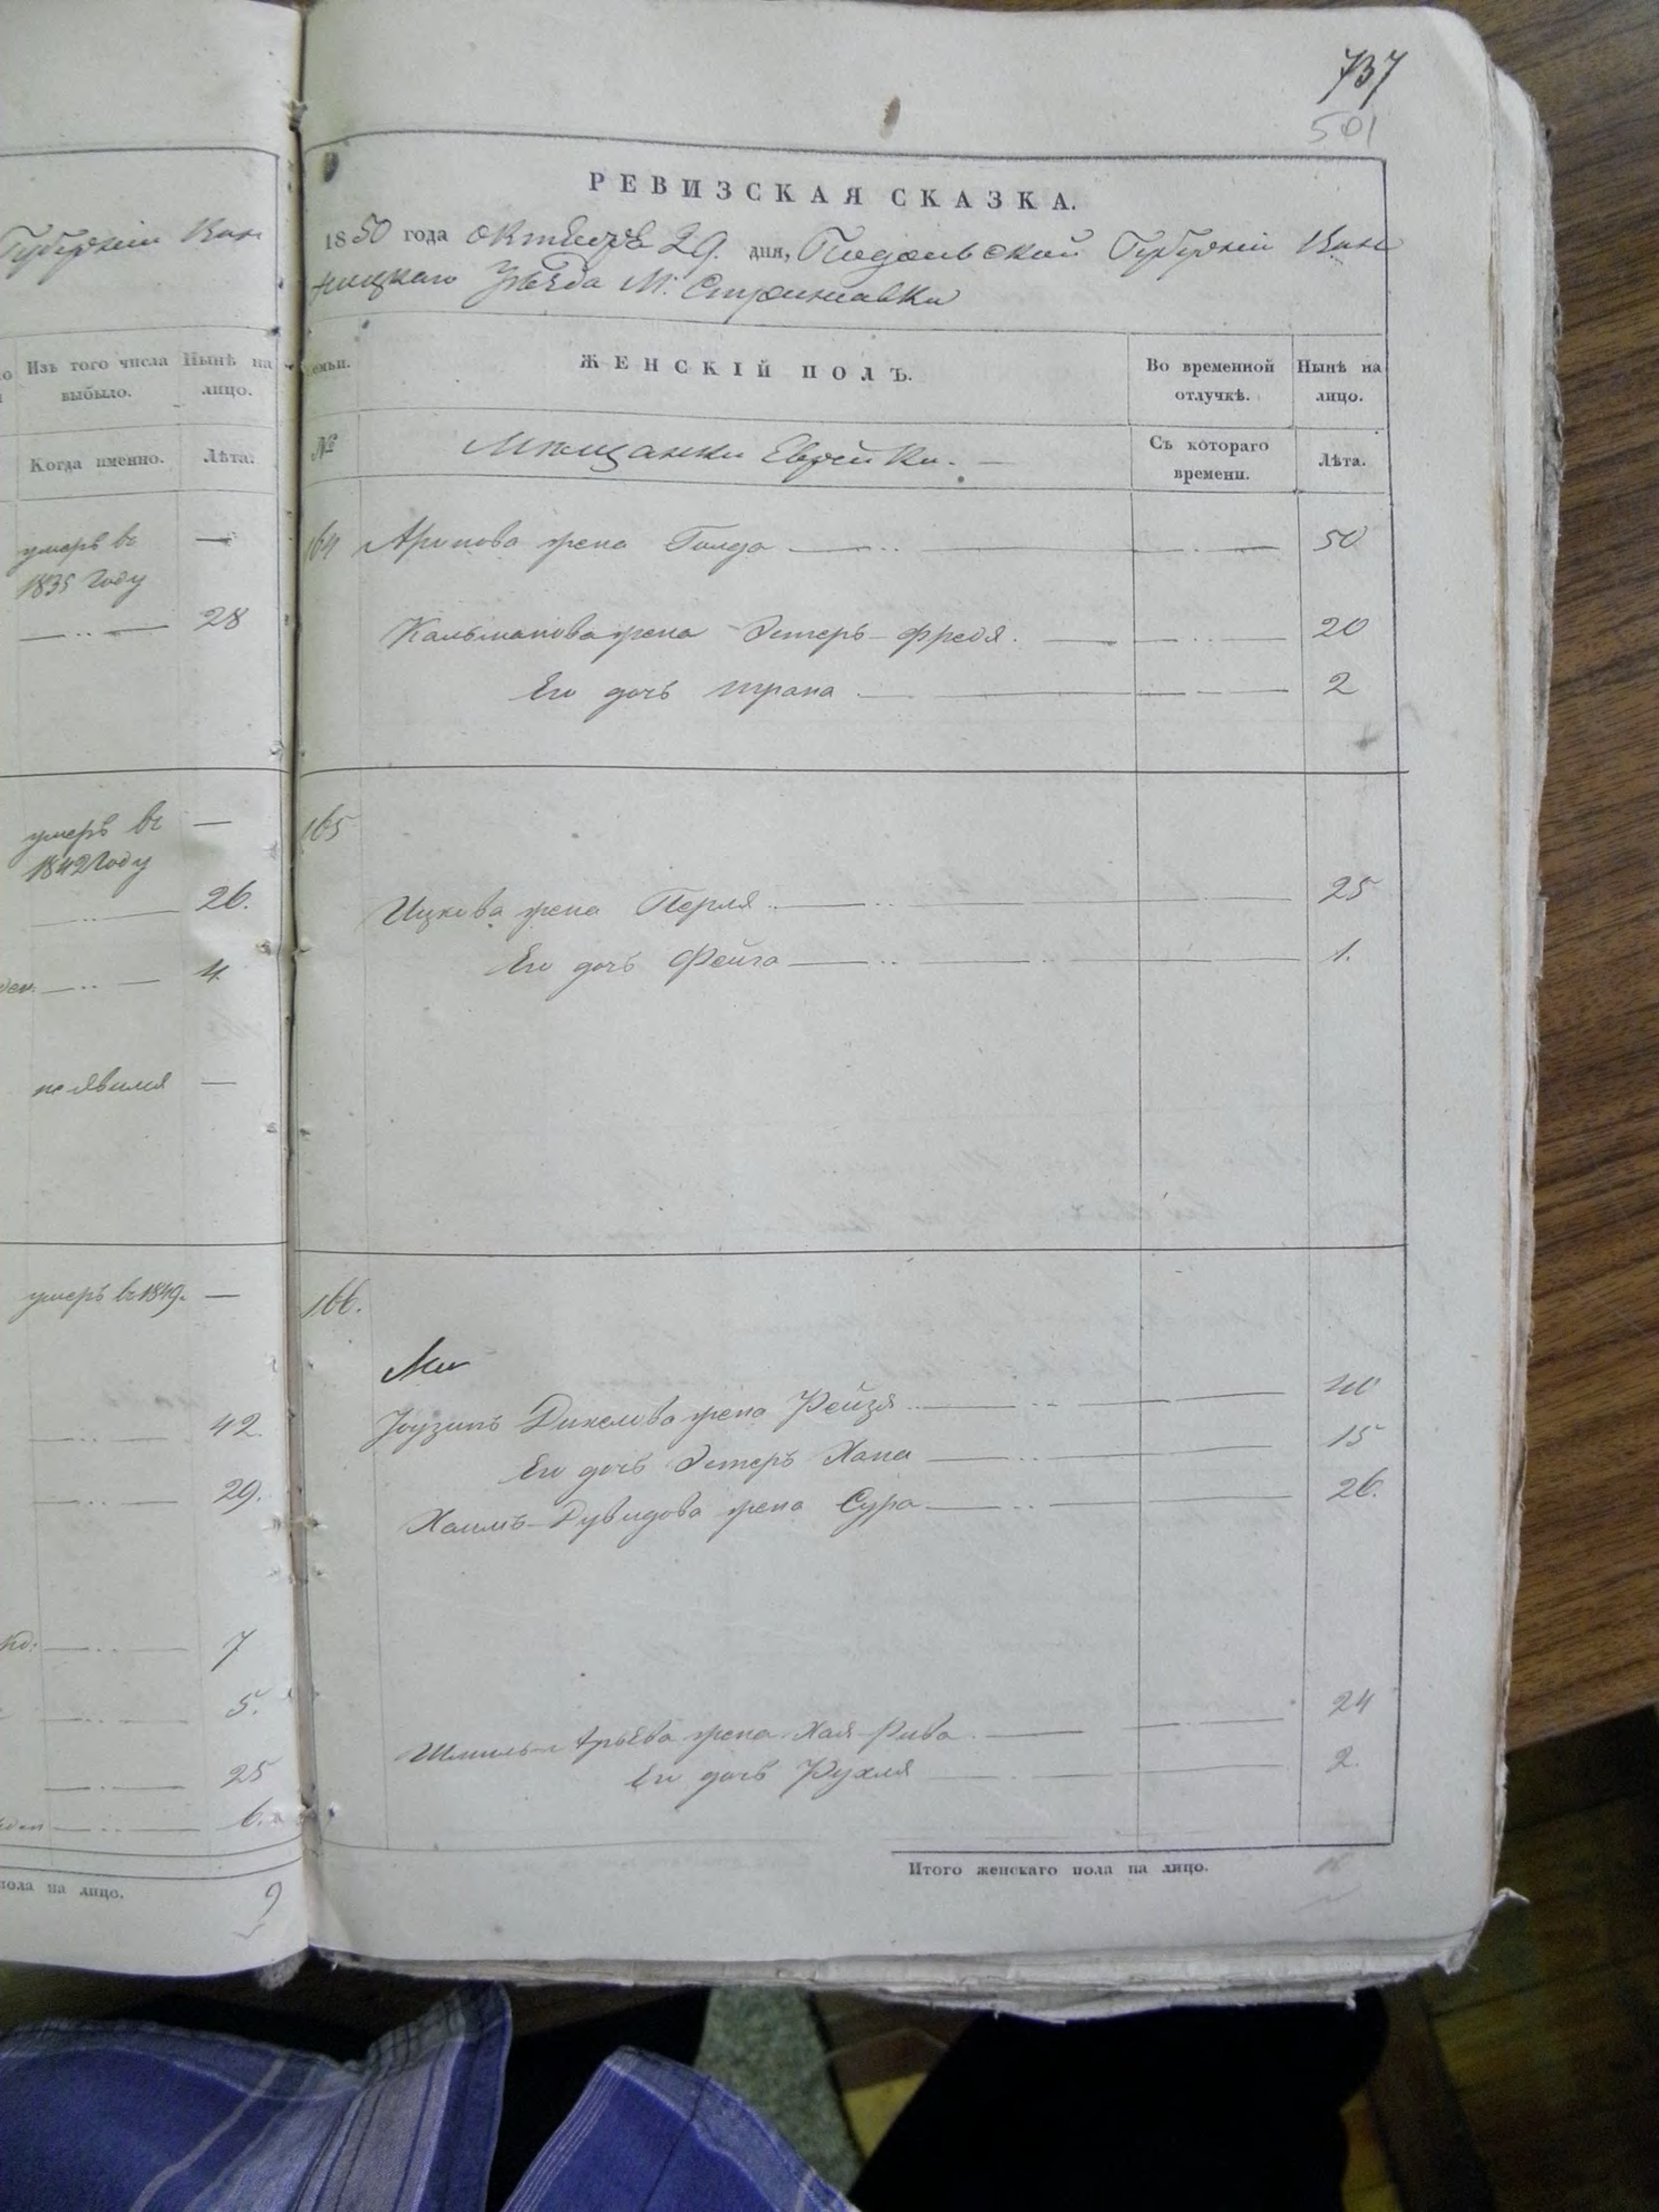 Губерніи Вин
Изъ того числа выбыло.
Нынѣ на лицо.
Когда именно.
Лѣта.
умеръ въ
1835 году
—
28
умеръ въ
1842 году
—
26.
4
не явился —
умеръ въ 1849. —
42.
29.
7
5.
25
6.
пола на лицо.
9
737
501
РЕВИЗСКАЯ СКАЗКА.
1850 года октября 29. дня, Подольской Губерніи Вин
ницкаго Уѣзда М. Стрижавки
семьи.
ЖЕНСКІЙ ПОЛЪ.
Во временной отлучкѣ.
Нынѣ на лицо.
№
Мѣщанки Еврейки. —
Съ котораго времени.
Лѣта.
164 Аронова жена Голда 50
Кальманова жена Эстеръ-Фрейда. 20
Его дочь 2
165
Ицкова жена Перля 25
Его дочь Фейга 1.
166.
Ми
жена Рейзя 40
Его дочь Эстеръ Хана 15
Хаимъ-Дувидова жена Сура 26.
жена Хая-Рива. 24
Его дочь Рухля 2.
Итого женскаго пола на лицо.